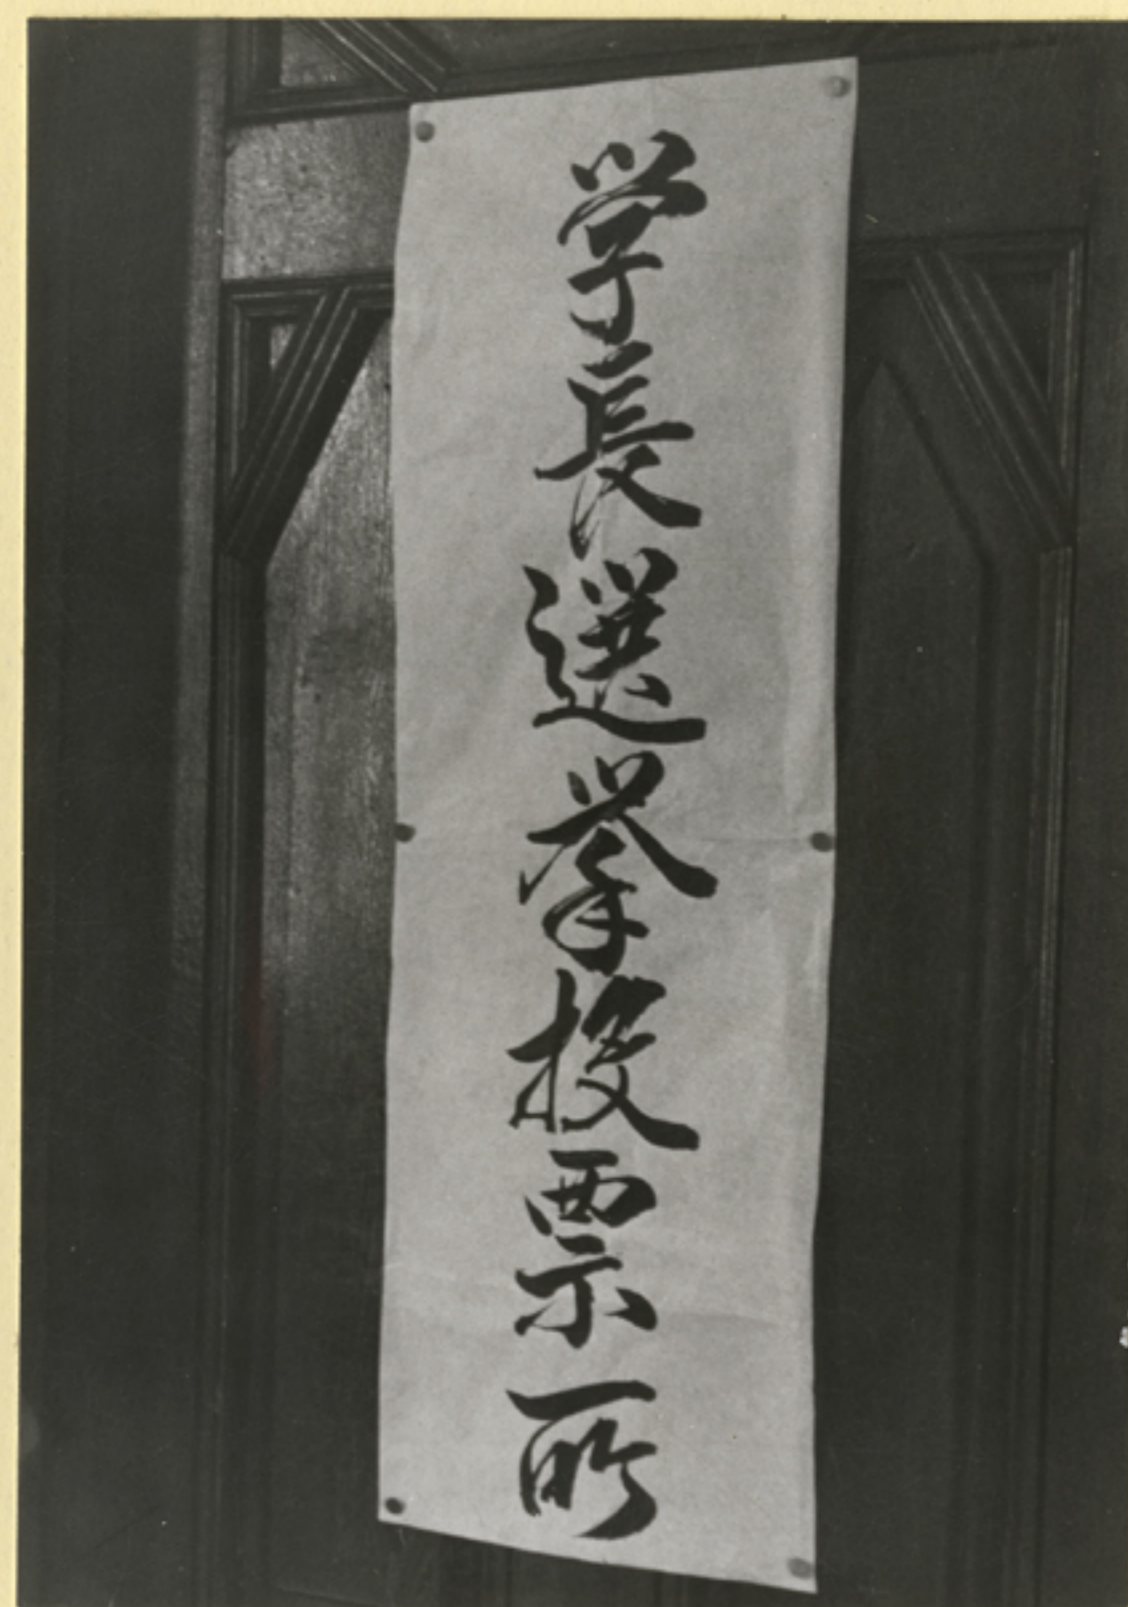 学長選挙投票所